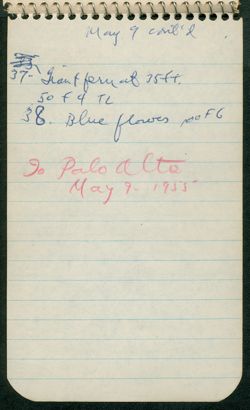 May 9 cont'd.
37- Giant fern at 35 ft.
50 F 4 TL
38. Blue flower no FG
To Palo Alto
May 9. 1955